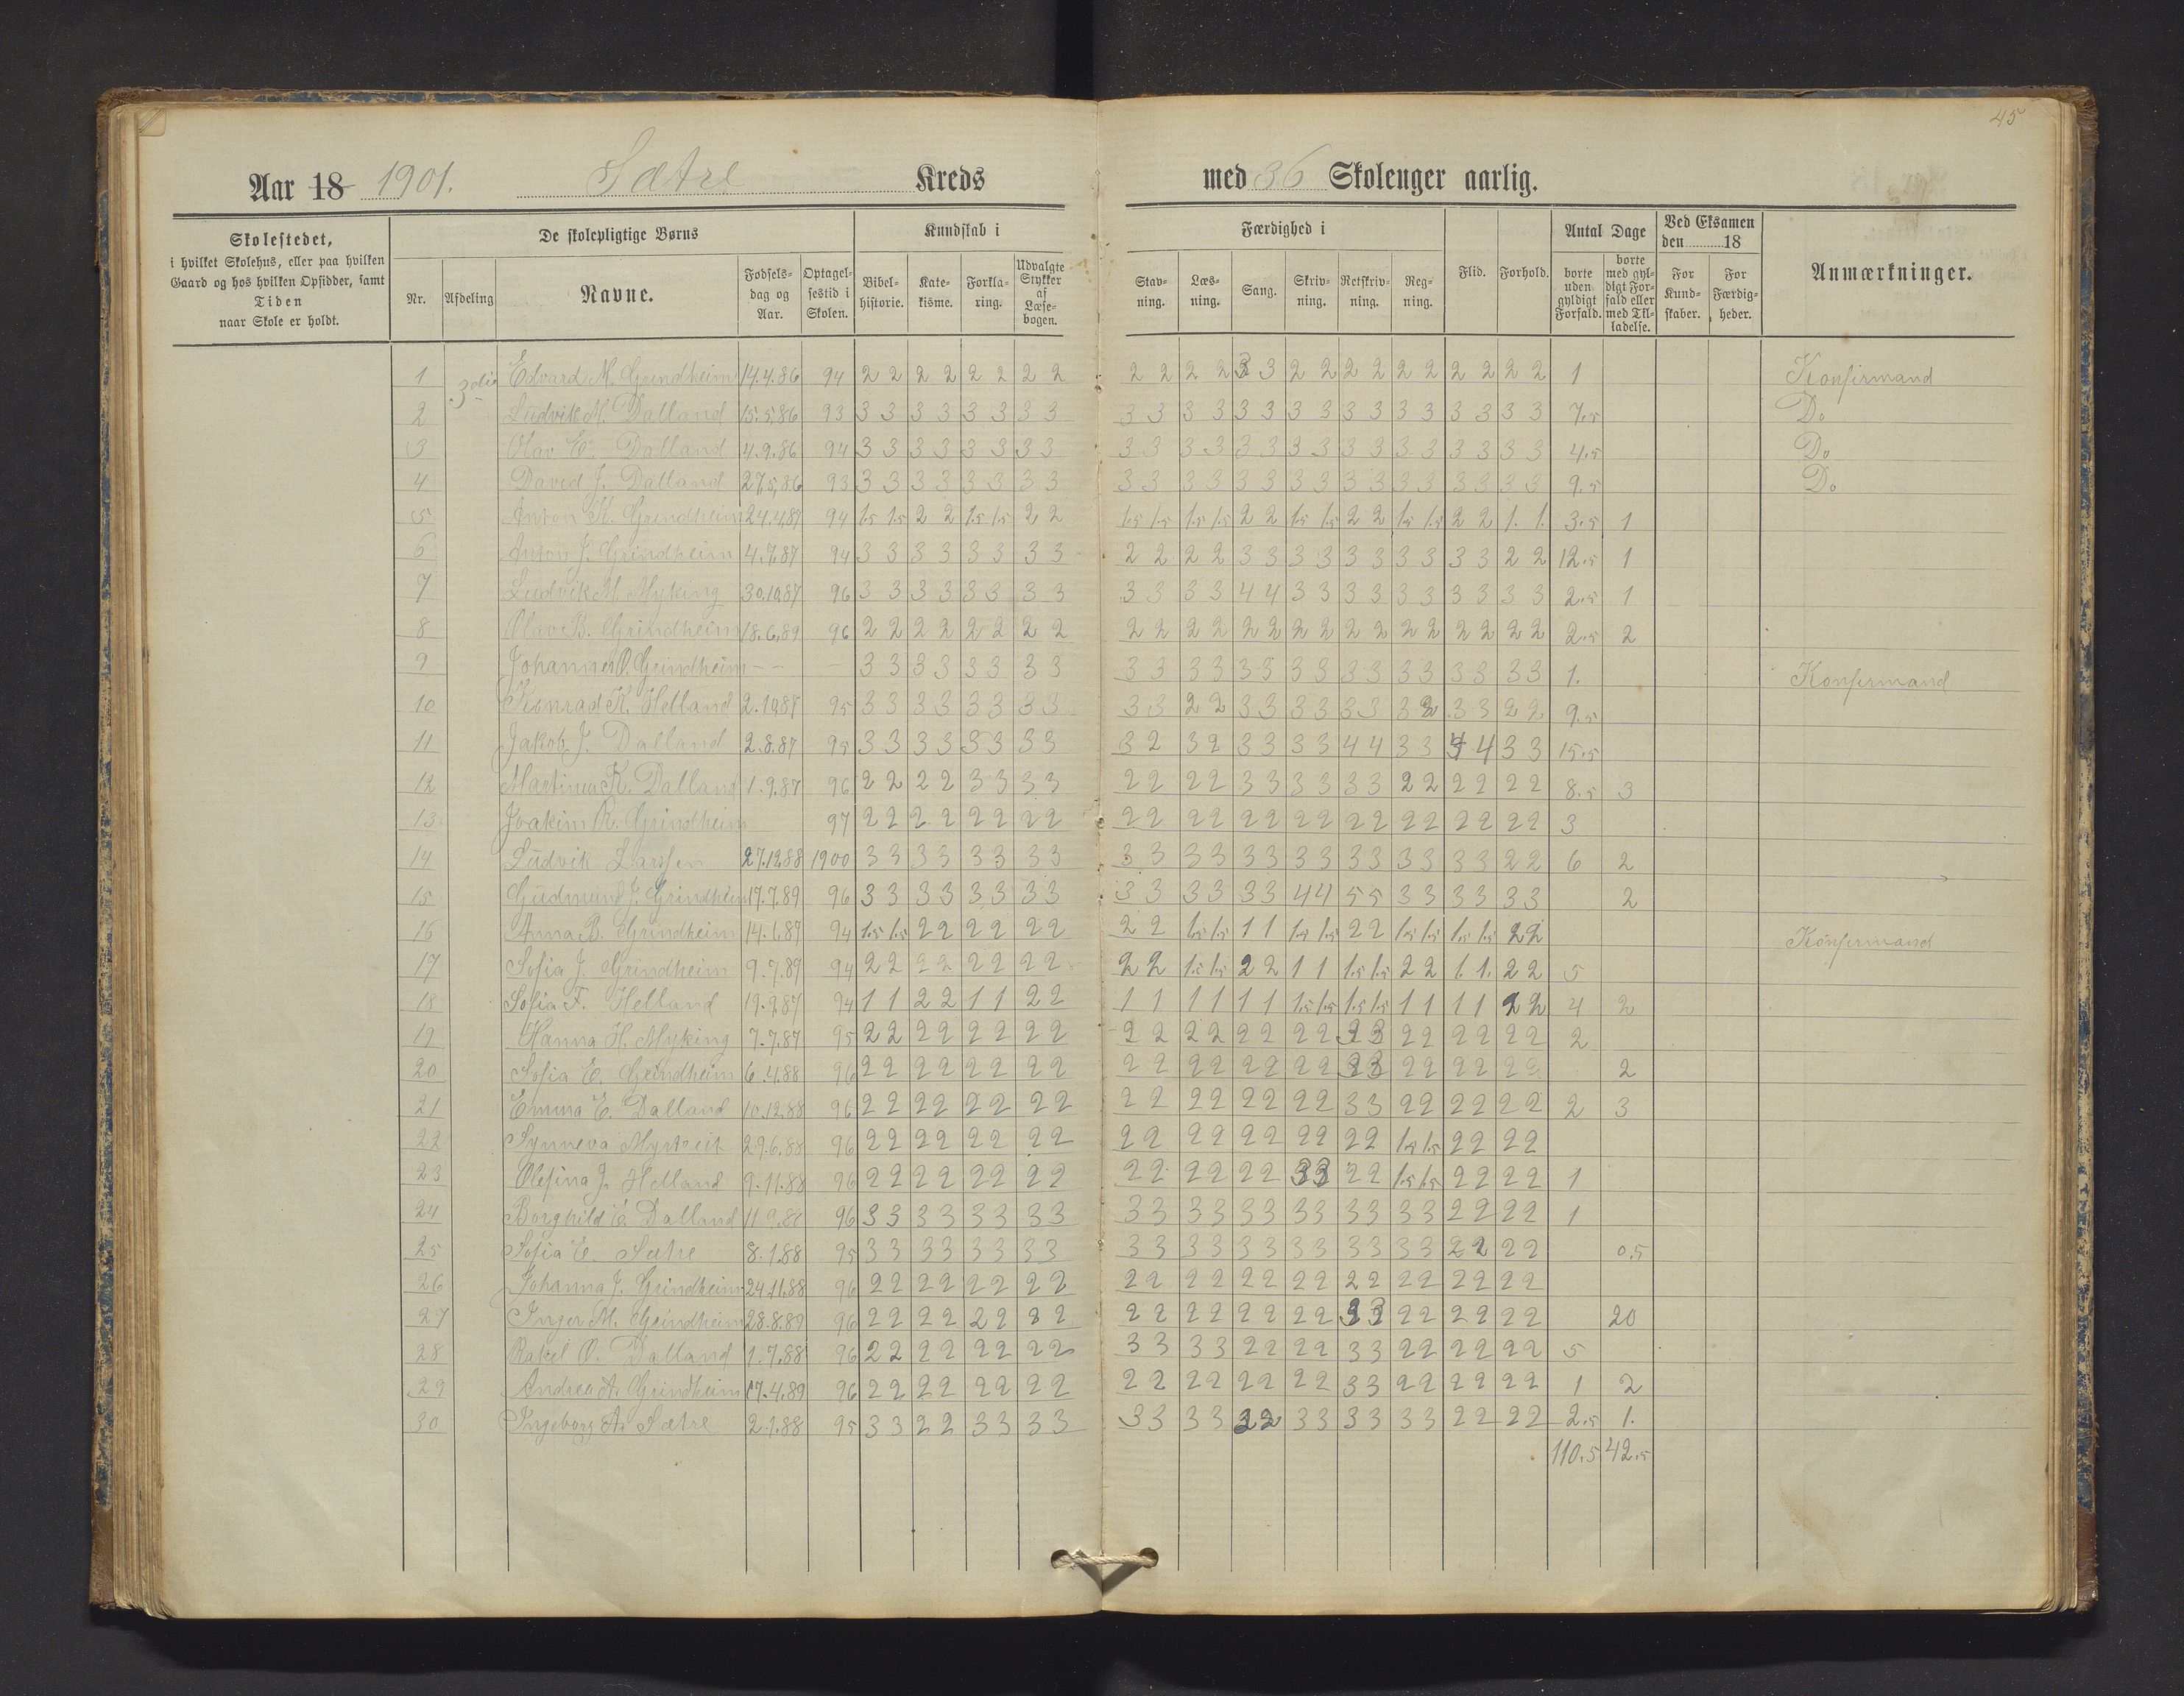 45
Aar 18 1901. Sætre Kreds med 36 Skoleuger aarlig.
Skolestedet, i hvilket Skolehus, eller paa hvilken Gaard og hos hvilken Opsidder, samt Tiden naar Skole er holdt.
De skolepligtige Børns
Nr. Afdeling Navne. Fødsels- dag og Aar. Optagel- sestid i Skolen.
Kundskab i
Bibel- historie. Kate- kisme. Forkla- ring. Udvalgte Stykker af Læse- bogen.
Færdighed i
Stav- ning. Læs- ning. Sang. Skriv- ning. Retskriv- ning. Reg- ning.
Flid. Forhold.
Antal Dage
borte uden gyldigt Forfald. borte med gyl- digt For- fald eller med Til- ladelse.
Ved Eksamen den 18
For Kund- skaber. For Færdig- heder.
Anmærkninger.
1 3die Edvard M. Grindheim 14.4.86 94 2 2 2 2 2 2 2 2 2 2 2 2 3 3 2 2 2 2 2 2 2 2 2 2 1 Konfirmand
2 Ludvik M. Dalland 15.5.86 93 3 3 3 3 3 3 3 3 3 3 3 3 3 3 3 3 3 3 3 3 3 3 3 3 7.5 Do
3 Olav E. Dalland 4.9.86 94 3 3 3 3 3 3 3 3 3 3 3 3 3 3 3 3 3 3 3 3 3 3 3 3 4.5 Do
4 David J. Dalland 27.5.86 93 3 3 3 3 3 3 3 3 3 3 3 3 3 3 3 3 3 3 3 3 3 3 3 3 9.5 Do
5 Anton K. Grindheim 24.4.87 94 1.5 1.5 2 2 1.5 1.5 2 2 1.5 1.5 1.5 1.5 2 2 1.5 1.5 2 2 1.5 1.5 2 2 1. 1. 3.5 1
6 Anton J. Grindheim 4.7.87 94 3 3 3 3 3 3 3 3 2 2 2 2 3 3 3 3 3 3 3 3 3 3 2 2 12.5 1
7 Ludvik M. Myking 30.10.87 96 3 3 3 3 3 3 3 3 3 3 3 3 4 4 3 3 3 3 3 3 3 3 3 3 2.5 1
8 Olav B. Grindheim 18.6.89 96 2 2 2 2 2 2 2 2 2 2 2 2 2 2 2 2 2 2 2 2 2 2 2 2 2.5 2
9 Johannes O. Grindheim - - - 3 3 3 3 3 3 3 3 3 3 3 3 3 3 3 3 3 3 3 3 3 3 3 3 1. Konfermand
10 Konrad K. Helland 2.10.87 95 3 3 3 3 3 3 3 3 3 3 2 2 3 3 3 3 3 3 3 2 3 3 2 2 9.5
11 Jakob J. Dalland 2.8.87 95 3 3 3 3 3 3 3 3 3 2 3 2 3 3 3 3 4 4 3 3 4 4 3 3 15.5
12 Martinus K. Dalland 1.9.87 96 2 2 2 2 3 3 3 3 2 2 2 2 3 3 3 3 3 3 2 2 2 2 2 2 8.5 3
13 Joakim R. Grindheim 97 2 2 2 2 2 2 2 2 2 2 2 2 2 2 2 2 2 2 2 2 2 2 2 2 3
14 Ludvik Larssen 27.12.88 1900 3 3 3 3 3 3 3 3 3 3 3 3 3 3 3 3 3 3 3 3 3 3 2 2 6 2
15 Gudmund J. Grindheim 17.7.89 96 3 3 3 3 3 3 3 3 3 3 3 3 3 3 4 4 5 5 3 3 3 3 3 3 2
16 Anna B. Grindheim 14.1.87 94 1.5 1.5 2 2 2 2 2 2 2 2 1.5 1.5 1 1 1.5 1.5 2 2 1.5 1.5 1.5 1.5 2 2 Konfermand
17 Sofia J. Grindheim 9.7.87 94 2 2 2 2 2 2 2 2 2 2 1.5 1.5 2 2 1 1 1.5 1.5 2 2 1. 1. 2 2 5
18 Sofia F. Helland 19.9.87 94 1 1 2 2 1 1 2 2 1 1 1 1 1 1 1.5 1.5 1.5 1.5 1 1 1 1 2 2 4 2
19 Hanna H. Myking 7.7.87 95 2 2 2 2 2 2 2 2 2 2 2 2 2 2 2 2 3 3 2 2 2 2 2 2 2
20 Sofia E. Grindheim 6.4.88 96 2 2 2 2 2 2 2 2 2 2 2 2 2 2 2 2 3 3 2 2 2 2 2 2 2
21 Emma E. Dalland 10.12.88 96 2 2 2 2 2 2 2 2 2 2 2 2 2 2 2 2 3 3 2 2 2 2 2 2 2 3
22 Synneva 29.6.88 96 2 2 2 2 2 2 2 2 2 2 2 2 2 2 2 2 2 2 1.5 1.5 2 2 2 2
23 Olefina J. Helland 9.11.88 96 2 2 2 2 2 2 2 2 2 2 2 2 2 2 3 3 2 2 1.5 1.5 2 2 2 2 1
24 Borghild E. Dalland 96 3 3 3 3 3 3 3 3 3 3 3 3 3 3 3 3 3 3 3 3 2 2 2 2 1
25 Sofia E. Sætre 8.1.88 95 3 3 3 3 3 3 3 3 3 3 3 3 3 3 3 3 3 3 3 3 2 2 2 2 0.5
26 Johanna J. Grindheim 24.11.88 96 2 2 2 2 2 2 2 2 2 2 2 2 2 2 2 2 2 2 2 2 2 2 2 2
27 Inger M. Grindheim 28.8.89 96 2 2 2 2 2 2 2 2 2 2 2 2 2 2 2 2 3 3 2 2 2 2 2 2 20
28 Rakel O. Dalland 1.7.88 96 2 2 2 2 2 2 2 2 3 3 3 3 2 2 2 2 3 3 2 2 2 2 2 2 5
29 Andrea A. Grindheim 17.4.89 96 2 2 2 2 2 2 2 2 2 2 2 2 2 2 2 2 3 3 2 2 2 2 2 2 1 2
30 Ingeborg A. Sætre 2.1.88 95 3 3 2 2 3 3 3 3 3 3 3 3 2 2 3 3 3 3 3 3 2 2 2 2 2.5 1.
110.5 42.5